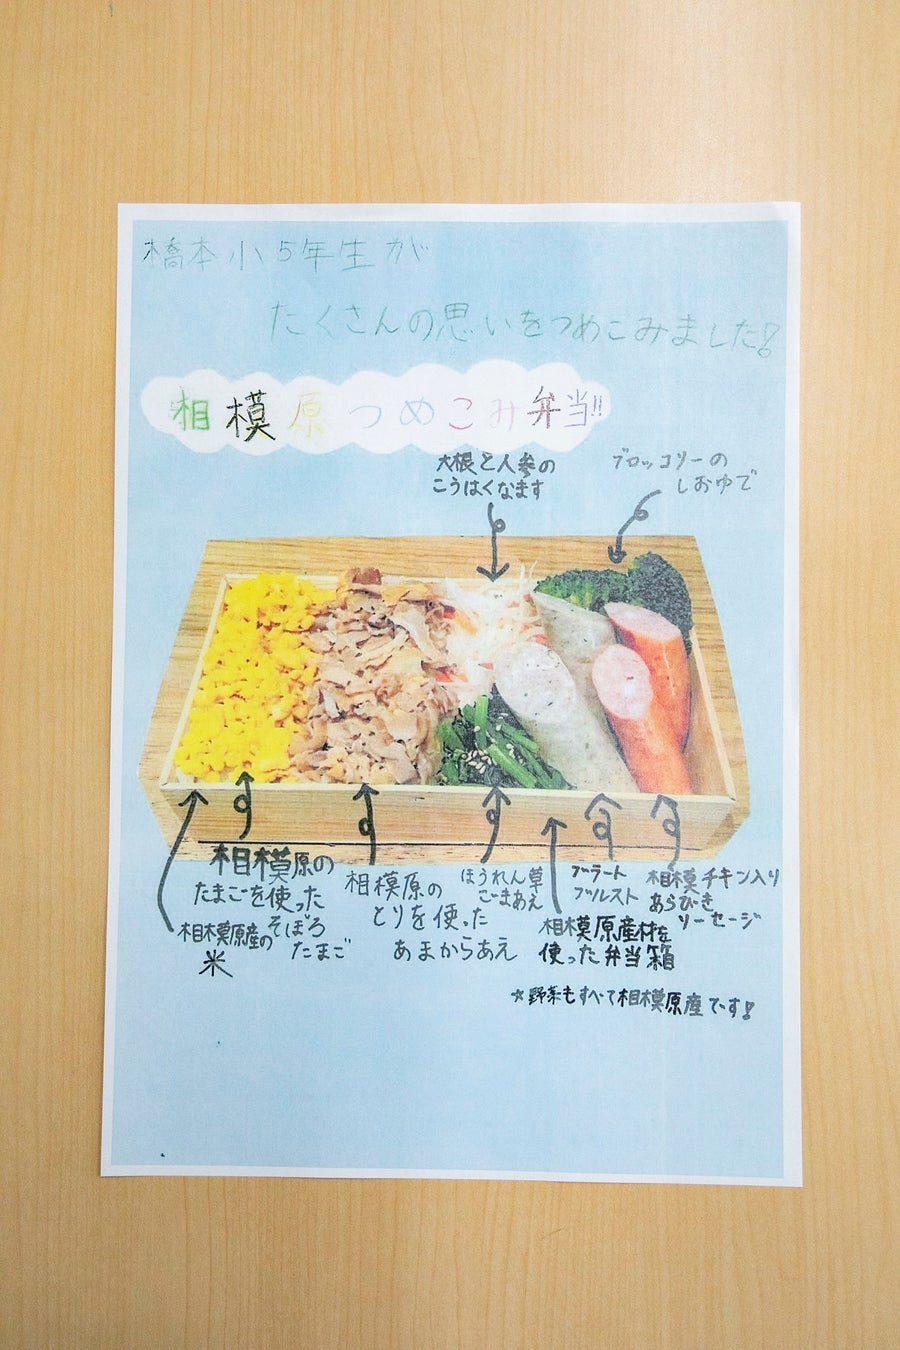 橋本小5年生が
たくさんの思いをつめこみました!
相模原つめこみ弁当!!
大根と人参の
こうはくなます
ブロッコリーの
しおゆで
相模原の
たまごを使った
そぼろ
たまご
相模原産の
米
相模原の
とりを使った
あまからあえ
ほうれん草
ごまあえ
相模原産材を
使った弁当箱
ブラート
ブルスト
相模チキン入り
あらびき
ソーセージ
☆野菜もすべて相模原産です!